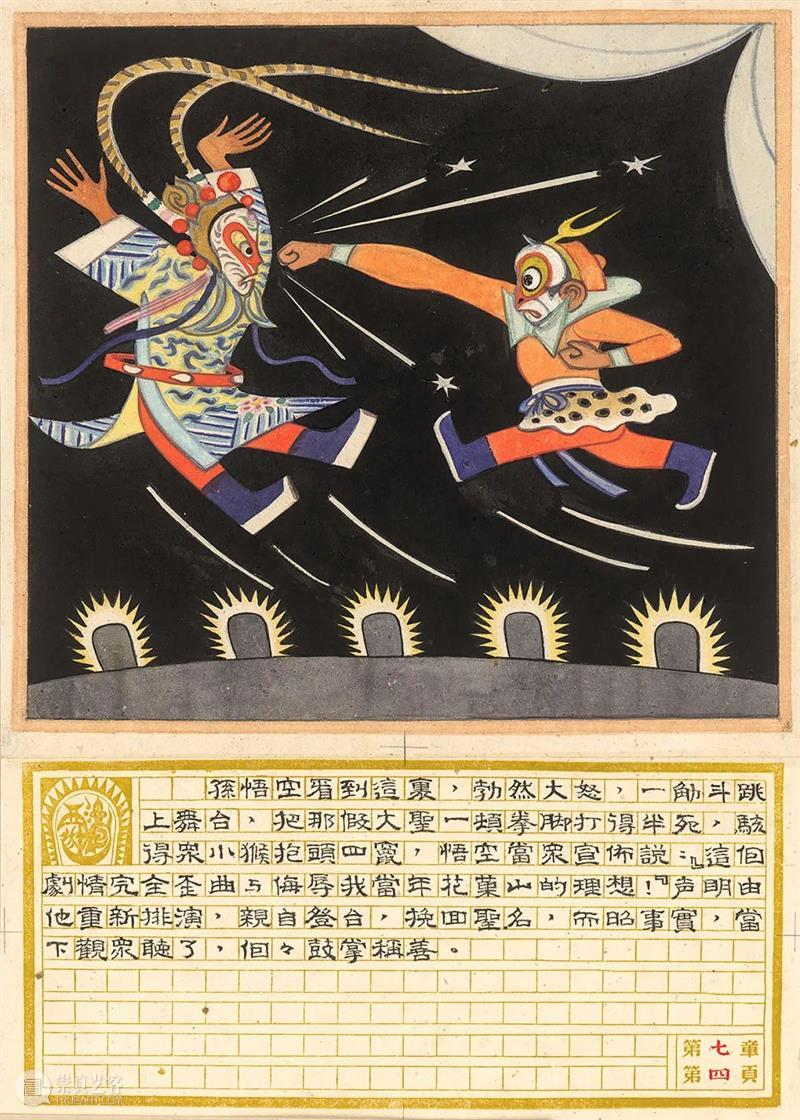 孫悟空看到這裏，勃然大怒，一觔斗跳
上舞台，把那假大聖一頓拳脚打得半死，駭
得眾小猴抱頭四竄，悟空當眾宣佈說：『這個
劇情完全歪曲与侮辱我當年花菓山的理想！』声明由
他重新排演，親自登台，挽回聖名，而昭事實，當
下觀眾聽了，個々鼓掌稱善。
第七章
第四頁
崇真艺客